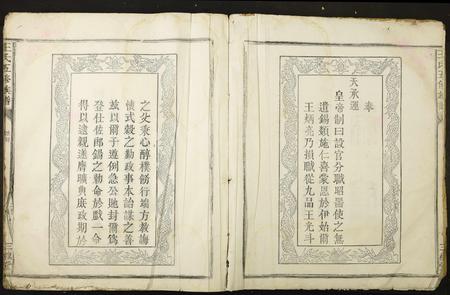 奉
天承運
皇帝制曰設官分職昭器使之無
遺錫類施仁喜蒙恩於伊始爾
王炳亮乃損職從九品王光斗
之父秉心醇樸飭行端方教誨
懷式穀之勤政事本詒謀之善
故以爾子遵例急公貤封爾為
登仕佐郎錫之勅命於戲一命
得以逮親遂膺曠典庶政期於
王氏五修族譜